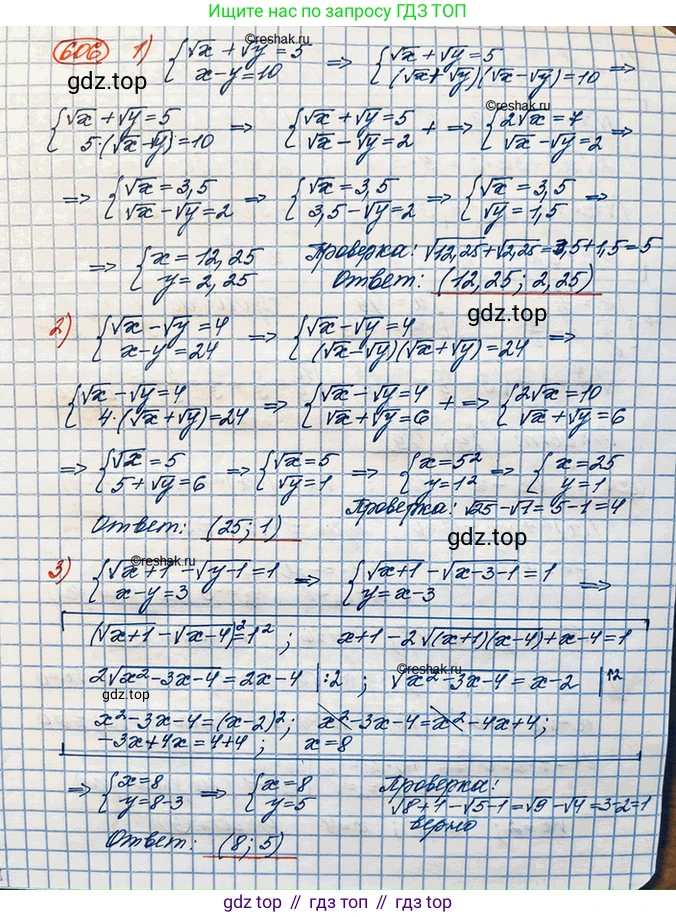 Ищите нас по запросу ГДЗ ТОП
606 1) {√x + √y = 5 x-y = 10 ⇒ {√x + √y = 5 (√x + √y)(√x - √y) = 10 ⇒
gdz.top
©reshak.ru
©reshak.ru
{√x + √y = 5 5·(√x - √y) = 10 ⇒ {√x + √y = 5 √x - √y = 2 + ⇒ {2√x = 7 √x - √y = 2 ⇒
⇒ {√x = 3,5 √x - √y = 2 ⇒ {√x = 3,5 3,5 - √y = 2 ⇒ {√x = 3,5 √y = 1,5 ⇒
⇒ {x = 12,25 y = 2,25 Проверка: √12,25 + √2,25 = 3,5 + 1,5 = 5
Ответ: (12,25; 2,25)
gdz.top
2) {√x - √y = 4 x-y = 24 ⇒ {√x - √y = 4 (√x - √y)(√x + √y) = 24 ⇒
{√x - √y = 4 4·(√x + √y) = 24 ⇒ {√x - √y = 4 √x + √y = 6 + ⇒ {2√x = 10 √x + √y = 6
⇒ {√x = 5 5 + √y = 6 ⇒ {√x = 5 √y = 1 ⇒ {x = 5² y = 1² ⇒ {x = 25 y = 1
Проверка: √25 - √1 = 5 - 1 = 4
Ответ: (25; 1)
gdz.top
©reshak.ru
3) {√x+1 - √y-1 = 1 x-y = 3 ⇒ {√x+1 - √x-3-1 = 1 y = x-3 ⇒
(√x+1 - √x-4)² = 1²; x+1-2√(x+1)(x-4) + x-4 = 1
2√x²-3x-4 = 2x-4 |:2 ; √x²-3x-4 = x-2 |↑2
gdz.top
©reshak.ru
x²-3x-4 = (x-2)²; x²-3x-4 = x²-4x+4;
-3x+4x = 4+4; x = 8
⇒ {x = 8 y = 8-3 ⇒ {x = 8 y = 5 Проверка:
√8+1 - √5-1 = √9 - √4 = 3-2 = 1
верно
Ответ: (8; 5)
gdz.top // gdz.top // gdz.top // gdz.top